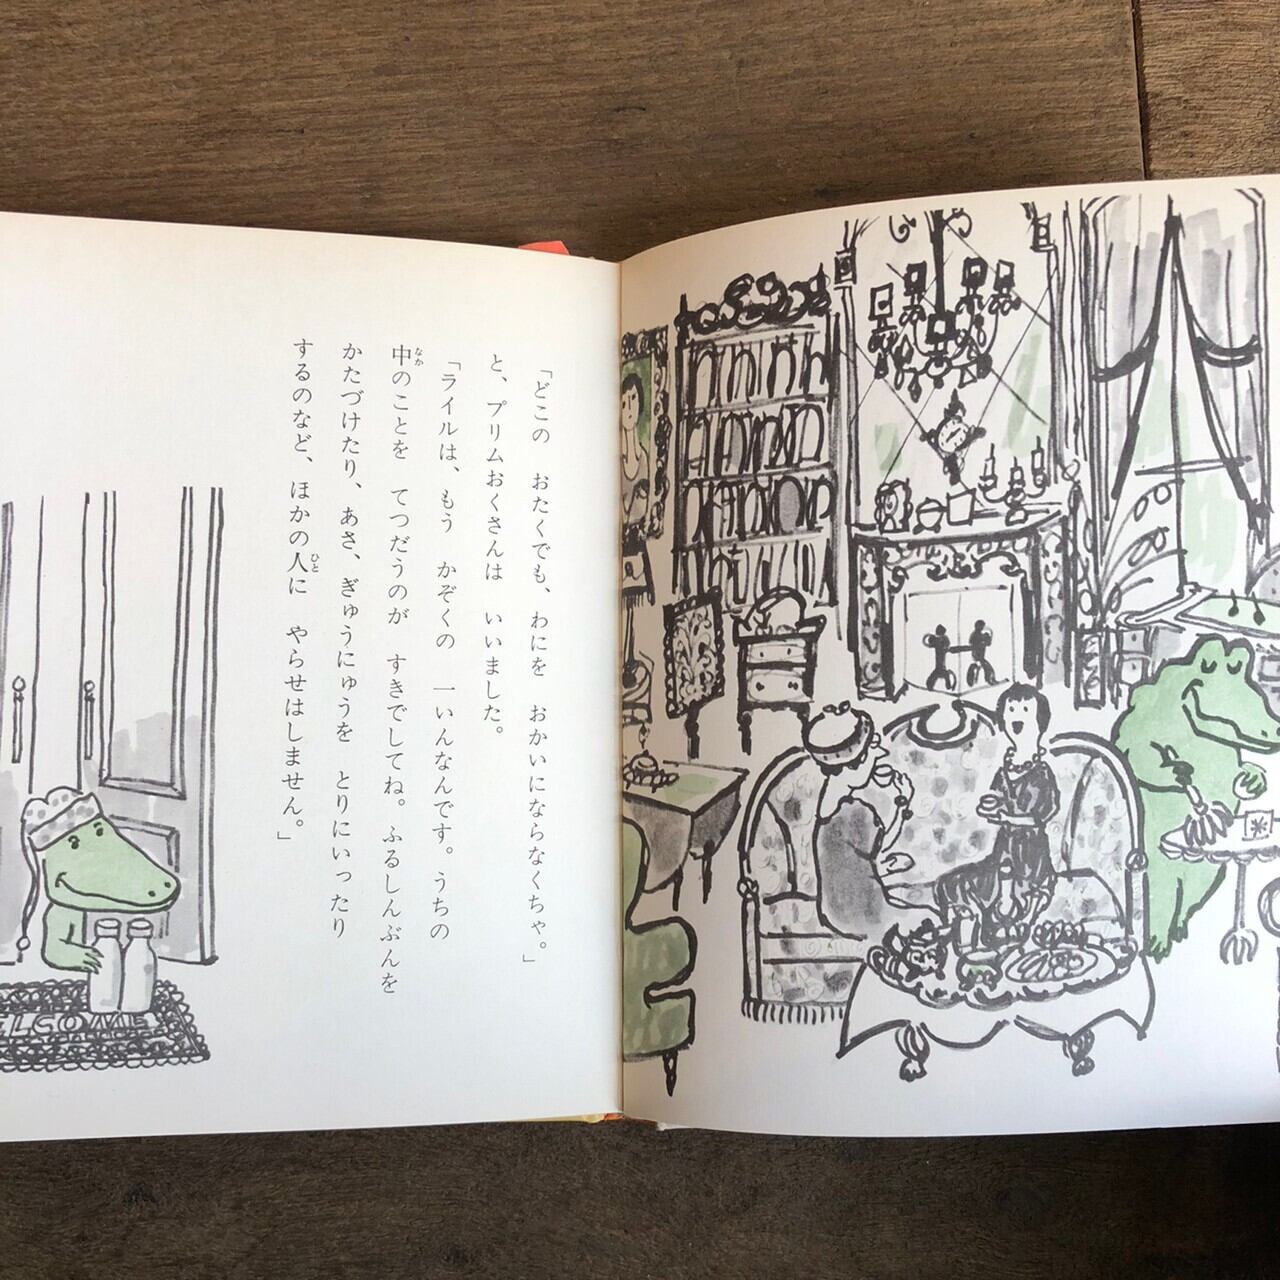 「どこの　おたくでも、わにを　おかいにならなくちゃ。」
と、プリムおくさんは　いいました。
「ライルは、もう　かぞくの　一いんなんです。うちの
中のことを　てつだうのが　すきでしてね。ふるしんぶんを
かたづけたり、あさ、ぎゅうにゅうを　とりにいったり
するのなど、ほかの人に　やらせはしません。」
ELCOME